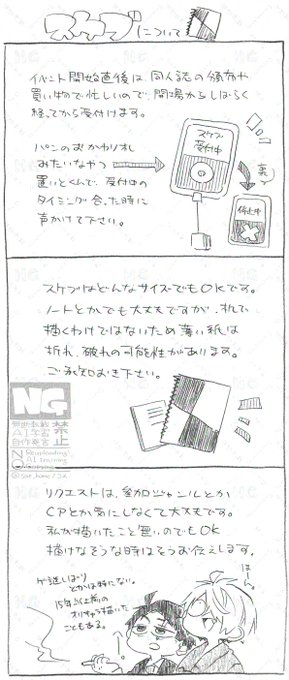 スケブについて
イベント開始直後は、同人誌の頒布や
買い物で忙しいので、開場からしばらく
経ってから受付けます。
パンのおかわりオレ
みたいなやつ
置いとくんで、受付中の
タイミング合った時に
声かけて下さい。
スケブ
受付中
裏
停止中
スケブはどんなサイズでもOKです。
ノートとかでも大丈夫ですが、机で
描くわけではないため薄い紙は
折れ、破れの可能性があります。
ご承知おき下さい。
NG
無断転載
AI学習
自作発言
禁止
NO
Reuploading
AI training
リクエストは、参加ジャンルとか
CPとか気にしなくて大丈夫です。
私が描いたこと無いのでもOK
描けなそうな時はそうお伝えします。
ケモ逃しばり
とかは特にない。
15年以上前の
オリキャラ描いた
こともある。
ほーん。